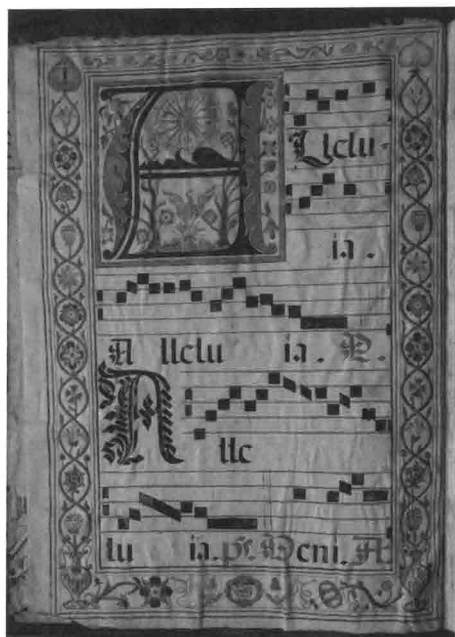 A Llelu-
ia.
A llelu ia.
A lle
lu ia. ps. Veni. A